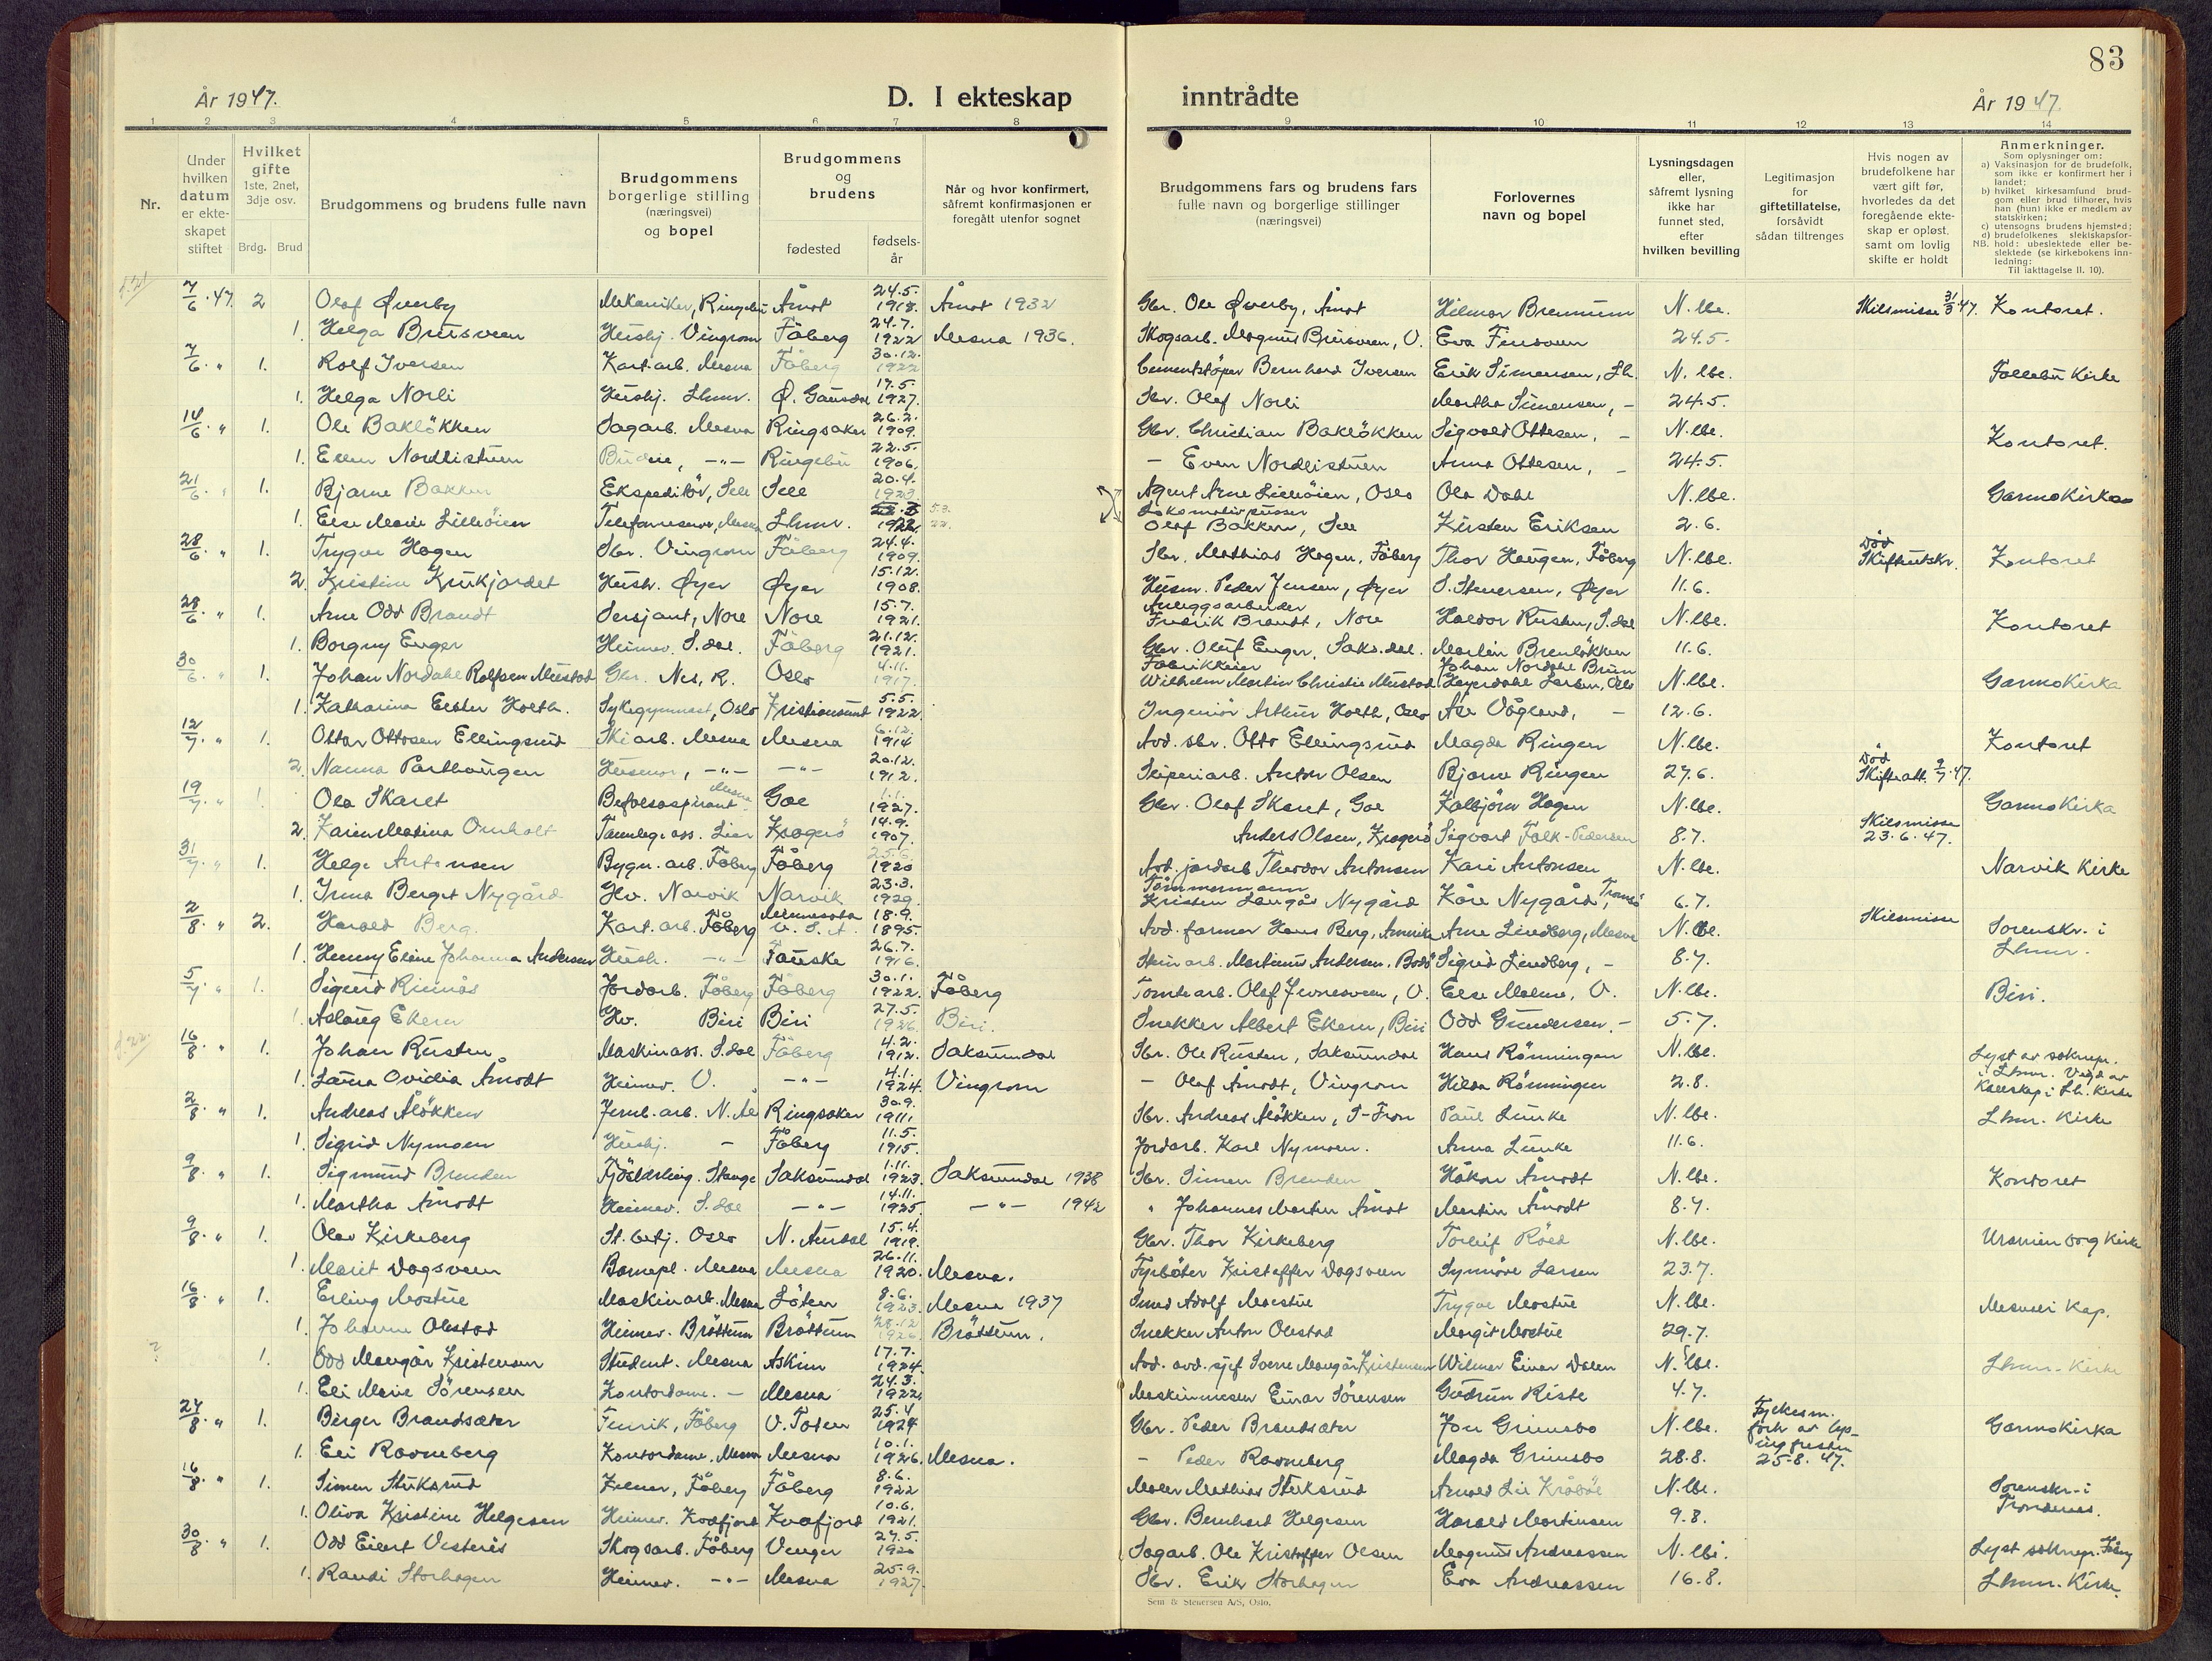 83
År 1947.
D. I ekteskap
inntrådte
År 1947.
1 2 3 4 5 6 7 8 9 10 11 12 13 14
Nr.
Under hvilken datum er ekteskapet stiftet
Hvilket gifte 1ste, 2net, 3dje osv.
Brdg. Brud
Brudgommens og brudens fulle navn
Brudgommens borgerlige stilling (næringsvei) og bopel
Brudgommens og brudens
fødested
fødselsår
Når og hvor konfirmert, såfremt konfirmasjonen er foregått utenfor sognet
Brudgommens fars og brudens fars fulle navn og borgerlige stillinger (næringsvei)
Forlovernes navn og bopel
Lysningsdagen eller, såfremt lysning ikke har funnet sted, efter hvilken bevilling
Legitimasjon for giftetillatelse, forsåvidt sådan tiltrenges
Hvis nogen av brudefolkene har vært gift før, hvorledes da det foregående ekteskap er opløst, samt om lovlig skifte er holdt
Anmerkninger.
Som oplysninger om:
a) Vaksinasjon for de brudefolk, som ikke er konfirmert her i landet;
b) hvilket kirkesamfund brudgom eller brud tilhører, hvis han (hun) ikke er medlem av statskirken;
c) utensogns brudens hjemsted;
d) brudefolkenes slektskapsforhold: ubeslektede eller beslektede (se kirkebokens innledning:
NB.
Til iakttagelse II. 10).
7/6. 47. 2 Olaf Øverby Mekaniker, Ringebu Åmot 24.5. 1918. Åmot 1932 Gbr. Ole Øverby, Åmot Hilmar Brennum N.lbe. Skilsmisse 31/3 47. Kontoret.
1. Helga Brusveen Hushj. Vingrom Fåberg 24.7. 1922 Mesna 1936. Skogsarb. Magnus Brusveen, V. Eva Finsveen 24.5.
7/6. " 1. Rolf Iversen Kart.arb. Mesna Fåberg 30.12. 1922 Cementstøper Bernhard Iversen Erik Simensen, Lh. N.lbe. Follebu Kirke
1. Helga Norli Hushj. Lhmr. Ø. Gausdal 17.5. 1927. Sbr. Olaf Norli Martha Simensen, - 24.5.
14/6. " 1. Ole Bakløkken Sagarb. Mesna Ringsaker 26.2. 1909. Gbr. Christian Bakløkken Sigvald Ottesen, - N.lbe. Kontoret.
1. Ellen Nordlistuen Budeie, -"- Ringebu 22.5. 1906. - Even Nordlistuen Anna Ottesen, - 24.5.
21/6. " 1. Bjarne Bakken Ekspeditør, Sell Sell 20.4. 1923 Agent Arne Lilleøien, Oslo Ola Dahl N.lbe. Garmokirka
1. Else Marie Lilleøien Lhmr. 1922. Lokomotivpusser Olaf Bakken, Sell Kirsten Eriksen 2.6.
28/6. " 1. Trygve Hagen Sbr. Vingrom Fåberg 24.4. 1909. Sbr. Mathias Hagen, Fåberg Thor Haugen, Fåberg N.lbe. Død Skifteutskr. Kontoret
2. Kristine Krukjordet Hush. Øyer Øyer 15.12. 1908. Husm. Peder Jensen, Øyer S. Stenersen, Øyer 11.6.
28/6. " 1. Arne Odd Brandt Sersjant, Nore Nore 15.7. 1921. Anleggsarbeider Fredrik Brandt, Nore Haldor Rusten, S.dal N.lbe. Kontoret
1. Borgny Enger Heimev. S.dal. Fåberg 21.12. 1921. Gbr. Oluf Enger, Saks.dal. Martin Brenløkken 11.6.
30/6. " 1. Johan Nordahl Rolfsen Mustad Gbr. Nes, R. Oslo 4.11. 1917. Fabrikkeier Wilhelm Martin Christie Mustad Johan Nordahl Brun Heyerdahl Larsen, Oslo N.lbe. Garmokirka
1. Katharina Ester Holth. Sykegymnast, Oslo Kristiansund 5.5. 1922. Ingeniør Arthur Holth, Oslo Åse Vågland, - 12.6.
12/7. " 1. Ottar Ottosen Ellingsrud Ski arb. Mesna Mesna 6.12. 1914 Avd. sbr. Otto Ellingsrud Magda Ringen N.lbe. Kontoret
2. Nanna Parthaugen Husmor, -"- -"- 20.12. 1912. Støperiarb. Anton Olsen Bjarne Ringen 27.6. Død Skifteatt. 9/7 47.
19/7. " 1 Ola Skaret Befalsaspirant Mesna Gol 1.1. 1927. Gbr. Olaf Skaret, Gol Kolbjørn Hagen N.lbe. Garmokirka
2. Karin Matina Omholt Tannleg ass. Lier Kragerø 14.9. 1907. Anders Olsen, Kragerø Sigvart Falk-Pedersen 8.7. Skilsmisse 23.6.47.
31/7. " 1. Helge Antonsen Bygn. arb. Fåberg Fåberg 25.6. 1920 Avd. jordarb Theodor Antonsen Kari Antonsen N.lbe. Narvik Kirke
1. Irma Berget Nygård Hv. Narvik Narvik 23.3. 1929. Tømmermann Kristen Langås Nygård Kåre Nygård, Tromsø 6.7.
2/8. " 2. Harald Berg. Kart. arb. Fåberg Minnesota U.S.A. 18.9. 1895. Avd. farmer Hans Berg, Amerika Arne Lindberg, Mesna N.lbe. Skilsmisse Sorenskr. i Lhmr.
1. Henny Eline Johanna Andersen Hush. -"- Fauske 26.7. 1916. Martinus Andersen, Bodø Sigrid Lindberg, - 8.7.
5/7. " 1. Sigurd Rusnås Jordarb. Fåberg Fåberg 30.1. 1922. Fåberg Tomtearb. Olaf Jevnesveen, V. Else Malme, V. N.lbe. Biri.
1. Aslaug Ekern Hv. Biri Biri 27.5. 1926. Biri. Snekker Albert Ekern, Biri Odd Gundersen. - 5.7.
16/8. " 1. Johan Rusten Maskinass. S.dal Fåberg 4.2. 1912. Saksumdal Sbr. Ole Rusten, Saksumdal Hans Rønningen N.lbe. Lyst av soknepr. i Lhmr. Vigd av Kallskap i Lh. Kirke
1. Laura Ovidia Åmodt Heimev. V. -"- 4.1. 1924. Vingrom - Olaf Åmodt, Vingrom Hilda Rønningen 2.8.
2/8. " 1. Andreas Åløkken Jernb. arb. N. Ål Ringsaker 30.9. 1911. Sbr. Andreas Åløkken, S-Fron Paul Lunke N.lbe. Lhmr. Kirke
1. Sigrid Nymoen Hushj. - Fåberg 11.5. 1915. Jordarb. Karl Nymoen. Anna Lunke 11.6.
9/8. " 1. Sigmund Brenden Stange Saksumdal 1.11. 1923. Saksumdal 1938 Sbr. Simen Brenden Håkon Åmodt N.lbe. Kontoret
1. Martha Åmodt Heimev. S.dal -"- 14.11. 1925. -"- 1942 " Johannes Morten Åmot Martin Åmodt 8.7.
9/8. " 1. Olav Kirkeberg St. betj. Oslo N. Aurdal 15.4. 1919. Gbr. Thor Kirkeberg Torleif Røed N.lbe. Uranienborg Kirke
1. Marit Dagsveen Barnepl. Mesna Mesna 26.11. 1920. Mesna. Fyrbøter Kristoffer Dagsveen Synnøve Larsen 23.7.
16/8. " 1. Erling Mostue Maskinarb. Mesna Løten 8.6. 1923. Mesna 1937 Smed Adolf Mostue Trygve Mostue N.lbe. Mesnali Kap.
1. Johanne Olestad Heimev. Brøttum Brøttum 28.12 1926. Brøttum. Snekker Anton Olestad Margit Mostue 29.7.
? 1. Odd Mangår Kristensen Student. Mesna Askim 17.7. 1924. Avd. avd. sjef Sverre Mangår Kristensen Wilmar Einar Dalen N.lbe. Lhmr. Kirke
1. Eli Marie Sørensen Kontordame. - Mesna 24.3. 1922. Maskinmester Einar Sørensen Gudrun Riste 4.7.
27/8. " 1. Birger Brandsæter Fenrik, Fåberg V. Toten 25.4 1924 Gbr. Peder Brandsæter Jon Grimsbo N.lbe. Fylkesm. fork av lysingfristen 25.8.47. Garmokirka
1. Eli Ravneberg Kontordame, Mesna Mesna 10.1. 1926. Mesna. - Peder Ravneberg Magda Grimsbo 28.8.
16/8. " 1. Simen Stuksrud Kelner, Fåberg Fåberg 8.6. 1922 Maler Mathias Stuksrud Arnold Lie Kråbøl N.lbe. Sorenskr. i Trondenes.
1. Oliva Kristine Helgesen Heimev. Kvæfjord Kvæfjord 10.6. 1921. Gbr. Bernhard Helgesen Harald Martinsen 9.8.
30/8. " 1. Odd Eilert Vesterås Skogsarb. Fåberg Vinger 27.5. 1920 Sagarb. Ole Kristoffer Olsen Magnus Andreassen N.lbe. Lyst soknepr. Fåberg
1. Randi Storhagen Heimev. -"- Mesna 25.9. 1927. Sbr. Erik Storhagen Eva Andreassen 16.8. Lhmr. Kirke.
Sem & Stenersen A/S, Oslo.